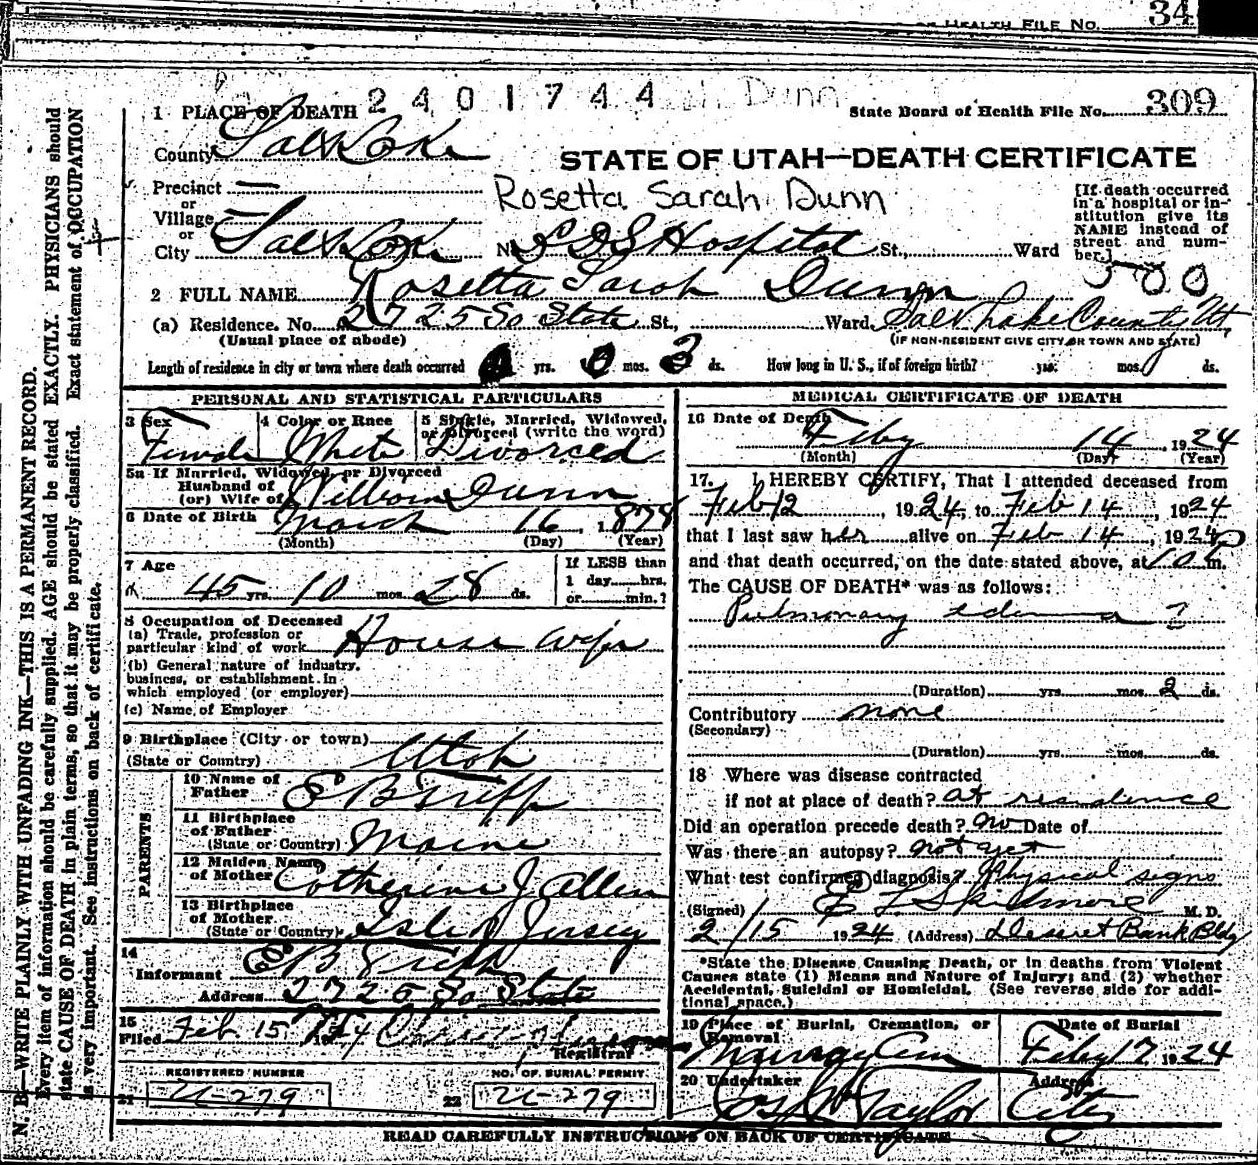 HEALTH FILE NO. 34
2401744 Dunn
1 PLACE OF DEATH
State Board of Health File No. 309
County Salt Lake
STATE OF UTAH—DEATH CERTIFICATE
Precinct —
or
Village —
or
City Salt Lake No. L D S Hospital St., Ward
Rosetta Sarah Dunn
[If death occurred in a hospital or institution give its NAME instead of street and number.]
500
2 FULL NAME Rosetta Sarah Dunn
(a) Residence. No. 2725 So State St., Ward. Salt Lake County Ut.
(Usual place of abode) (IF NON-RESIDENT GIVE CITY OR TOWN AND STATE)
Length of residence in city or town where death occurred yrs. 0 mos. 3 ds. How long in U. S., if of foreign birth? yrs. mos. ds.
PERSONAL AND STATISTICAL PARTICULARS
3 Sex Female
4 Color or Race White
5 Single, Married, Widowed, or Divorced (write the word) Divorced
5a If Married, Widowed, or Divorced
Husband of
(or) Wife of William Dunn
6 Date of Birth March 16, 1878
(Month) (Day) (Year)
7 Age 45 yrs. 10 mos. 28 ds.
If LESS than
1 day......hrs.
or......min.?
8 Occupation of Deceased
(a) Trade, profession or
particular kind of work House wife
(b) General nature of industry,
business, or establishment in
which employed (or employer)
(c) Name of Employer
9 Birthplace (City or town)
(State or Country) Utah
PARENTS
10 Name of
Father E B Tripp
11 Birthplace
of Father
(State or Country) Maine
12 Maiden Name
of Mother Catherine J. Allen
13 Birthplace
of Mother
(State or Country) Isle of Jersey
14
Informant B Tripp
Address 2725 So State
15
Filed Feb 15 1924
Registrar
REGISTERED NUMBER
21 U-279
NO. OF BURIAL PERMIT
22 U-279
MEDICAL CERTIFICATE OF DEATH
16 Date of Death
Feby 14 1924
(Month) (Day) (Year)
17. I HEREBY CERTIFY, That I attended deceased from
Feb 12, 1924, to Feb 14, 1924
that I last saw her alive on Feb 14, 1924
and that death occurred, on the date stated above, at 10 P m.
The CAUSE OF DEATH* was as follows:
Pulmonary edema ?
(Duration) yrs. mos. 2 ds.
Contributory none
(Secondary)
(Duration) yrs. mos. ds.
18 Where was disease contracted
if not at place of death? at residence
Did an operation precede death? No Date of
Was there an autopsy? not yet
What test confirmed diagnosis? Physical signs
(Signed) E L Skidmore M. D.
2/15 1924 (Address) Deseret Bank Bldg
*State the Disease Causing Death, or in deaths from Violent
Causes state (1) Means and Nature of Injury; and (2) whether
Accidental, Suicidal or Homicidal. (See reverse side for addi-
tional space.)
19 Place of Burial, Cremation, or
Removal
Murray Cem
Date of Burial
Feby 17 1924
20 Undertaker
Jos Wm Taylor
Address
City
READ CAREFULLY INSTRUCTIONS ON BACK OF CERTIFICATE
N. B.—WRITE PLAINLY WITH UNFADING INK—THIS IS A PERMANENT RECORD.
Every item of information should be carefully supplied. AGE should be stated EXACTLY. PHYSICIANS should
state CAUSE OF DEATH in plain terms, so that it may be properly classified. Exact statement of OCCUPATION
is very important. See instructions on back of certificate.